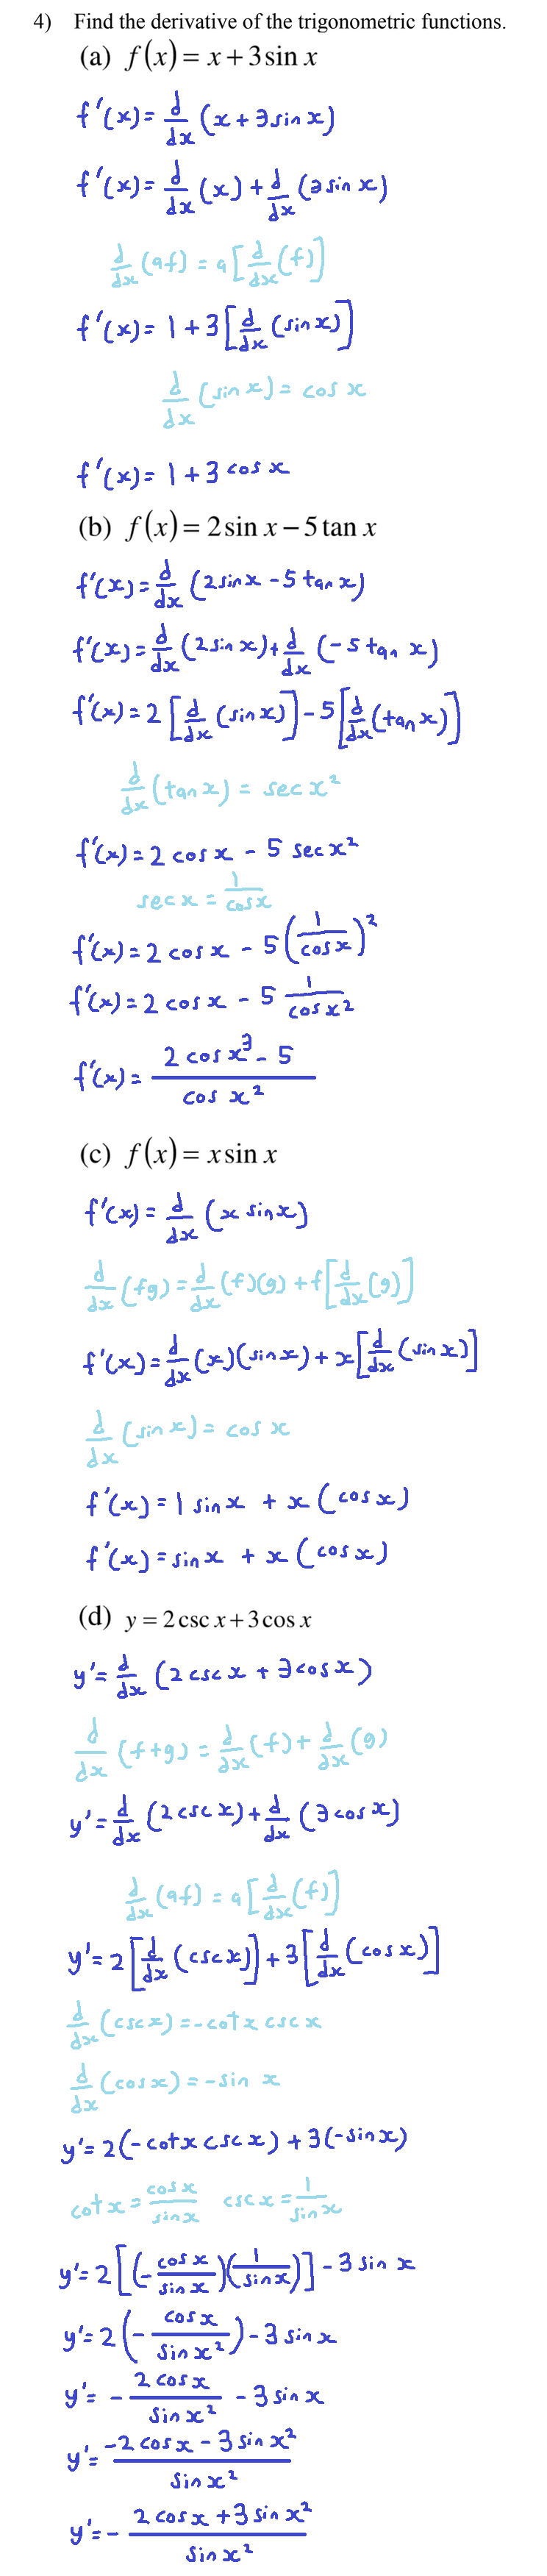 4) Find the derivative of the trigonometric functions.
(a) f(x) = x + 3 sin x
f'(x) = d/dx (x + 3 sin x)
f'(x) = d/dx (x) + d/dx (3 sin x)
d/dx (af) = a[d/dx (f)]
f'(x) = 1 + 3[d/dx (sin x)]
d/dx (sin x) = cos x
f'(x) = 1 + 3 cos x
(b) f(x) = 2 sin x − 5 tan x
f'(x) = d/dx (2 sin x - 5 tan x)
f'(x) = d/dx (2 sin x) + d/dx (-5 tan x)
f'(x) = 2[d/dx (sin x)] - 5[d/dx (tan x)]
d/dx (tan x) = sec x²
f'(x) = 2 cos x - 5 sec x²
sec x = 1/cos x
f'(x) = 2 cos x - 5 (1/cos x)²
f'(x) = 2 cos x - 5 1/cos x²
f'(x) = (2 cos x³ - 5)/(cos x²)
(c) f(x) = x sin x
f'(x) = d/dx (x sin x)
d/dx (fg) = d/dx (f)(g) + f[d/dx (g)]
f'(x) = d/dx (x)(sin x) + x[d/dx (sin x)]
d/dx (sin x) = cos x
f'(x) = 1 sin x + x (cos x)
f'(x) = sin x + x (cos x)
(d) y = 2 csc x + 3 cos x
y' = d/dx (2 csc x + 3 cos x)
d/dx (f+g) = d/dx (f) + d/dx (g)
y' = d/dx (2 csc x) + d/dx (3 cos x)
d/dx (af) = a[d/dx (f)]
y' = 2[d/dx (csc x)] + 3[d/dx (cos x)]
d/dx (csc x) = -cot x csc x
d/dx (cos x) = -sin x
y' = 2(-cot x csc x) + 3(-sin x)
cot x = cos x/sin x csc x = 1/sin x
y' = 2[(-cos x/sin x)(1/sin x)] - 3 sin x
y' = 2(-cos x/sin x²) - 3 sin x
y' = - 2 cos x/sin x² - 3 sin x
y' = (-2 cos x - 3 sin x²)/(sin x²)
y' = - (2 cos x + 3 sin x²)/(sin x²)